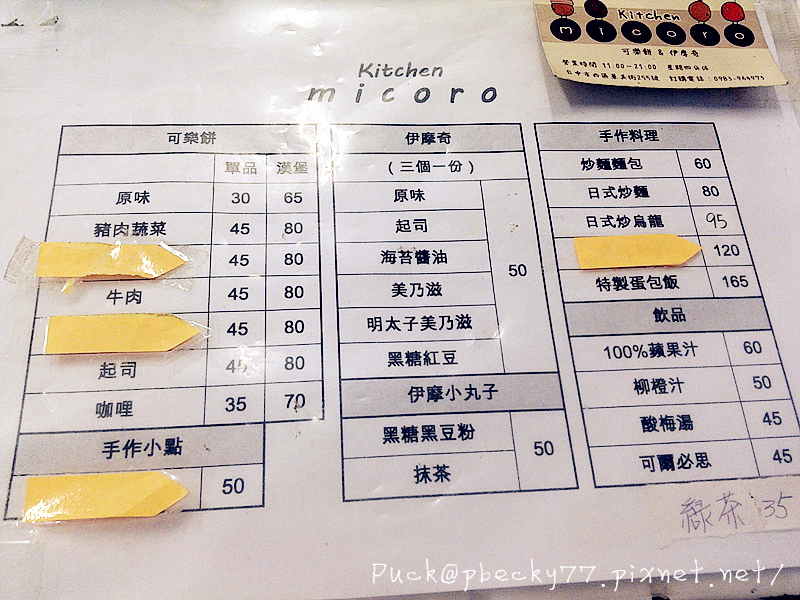 Kitchen
micoro
可樂餅 & 伊摩奇
營業時間 11:00~21:00 星期四公休
台中市西區華美街255號 訂購電話:0983-964975
Kitchen
micoro
可樂餅
單品 漢堡
原味 30 65
豬肉蔬菜 45 80
45 80
牛肉 45 80
45 80
起司 45 80
咖哩 35 70
手作小點
50
伊摩奇
(三個一份)
原味
起司
海苔醬油
美乃滋
明太子美乃滋
黑糖紅豆
50
伊摩小丸子
黑糖黑豆粉
抹茶
50
手作料理
炒麵麵包 60
日式炒麵 80
日式炒烏龍 95
120
特製蛋包飯 165
飲品
100%蘋果汁 60
柳橙汁 50
酸梅湯 45
可爾必思 45
綠茶 35
Puck@pbecky77.pixnet.net/